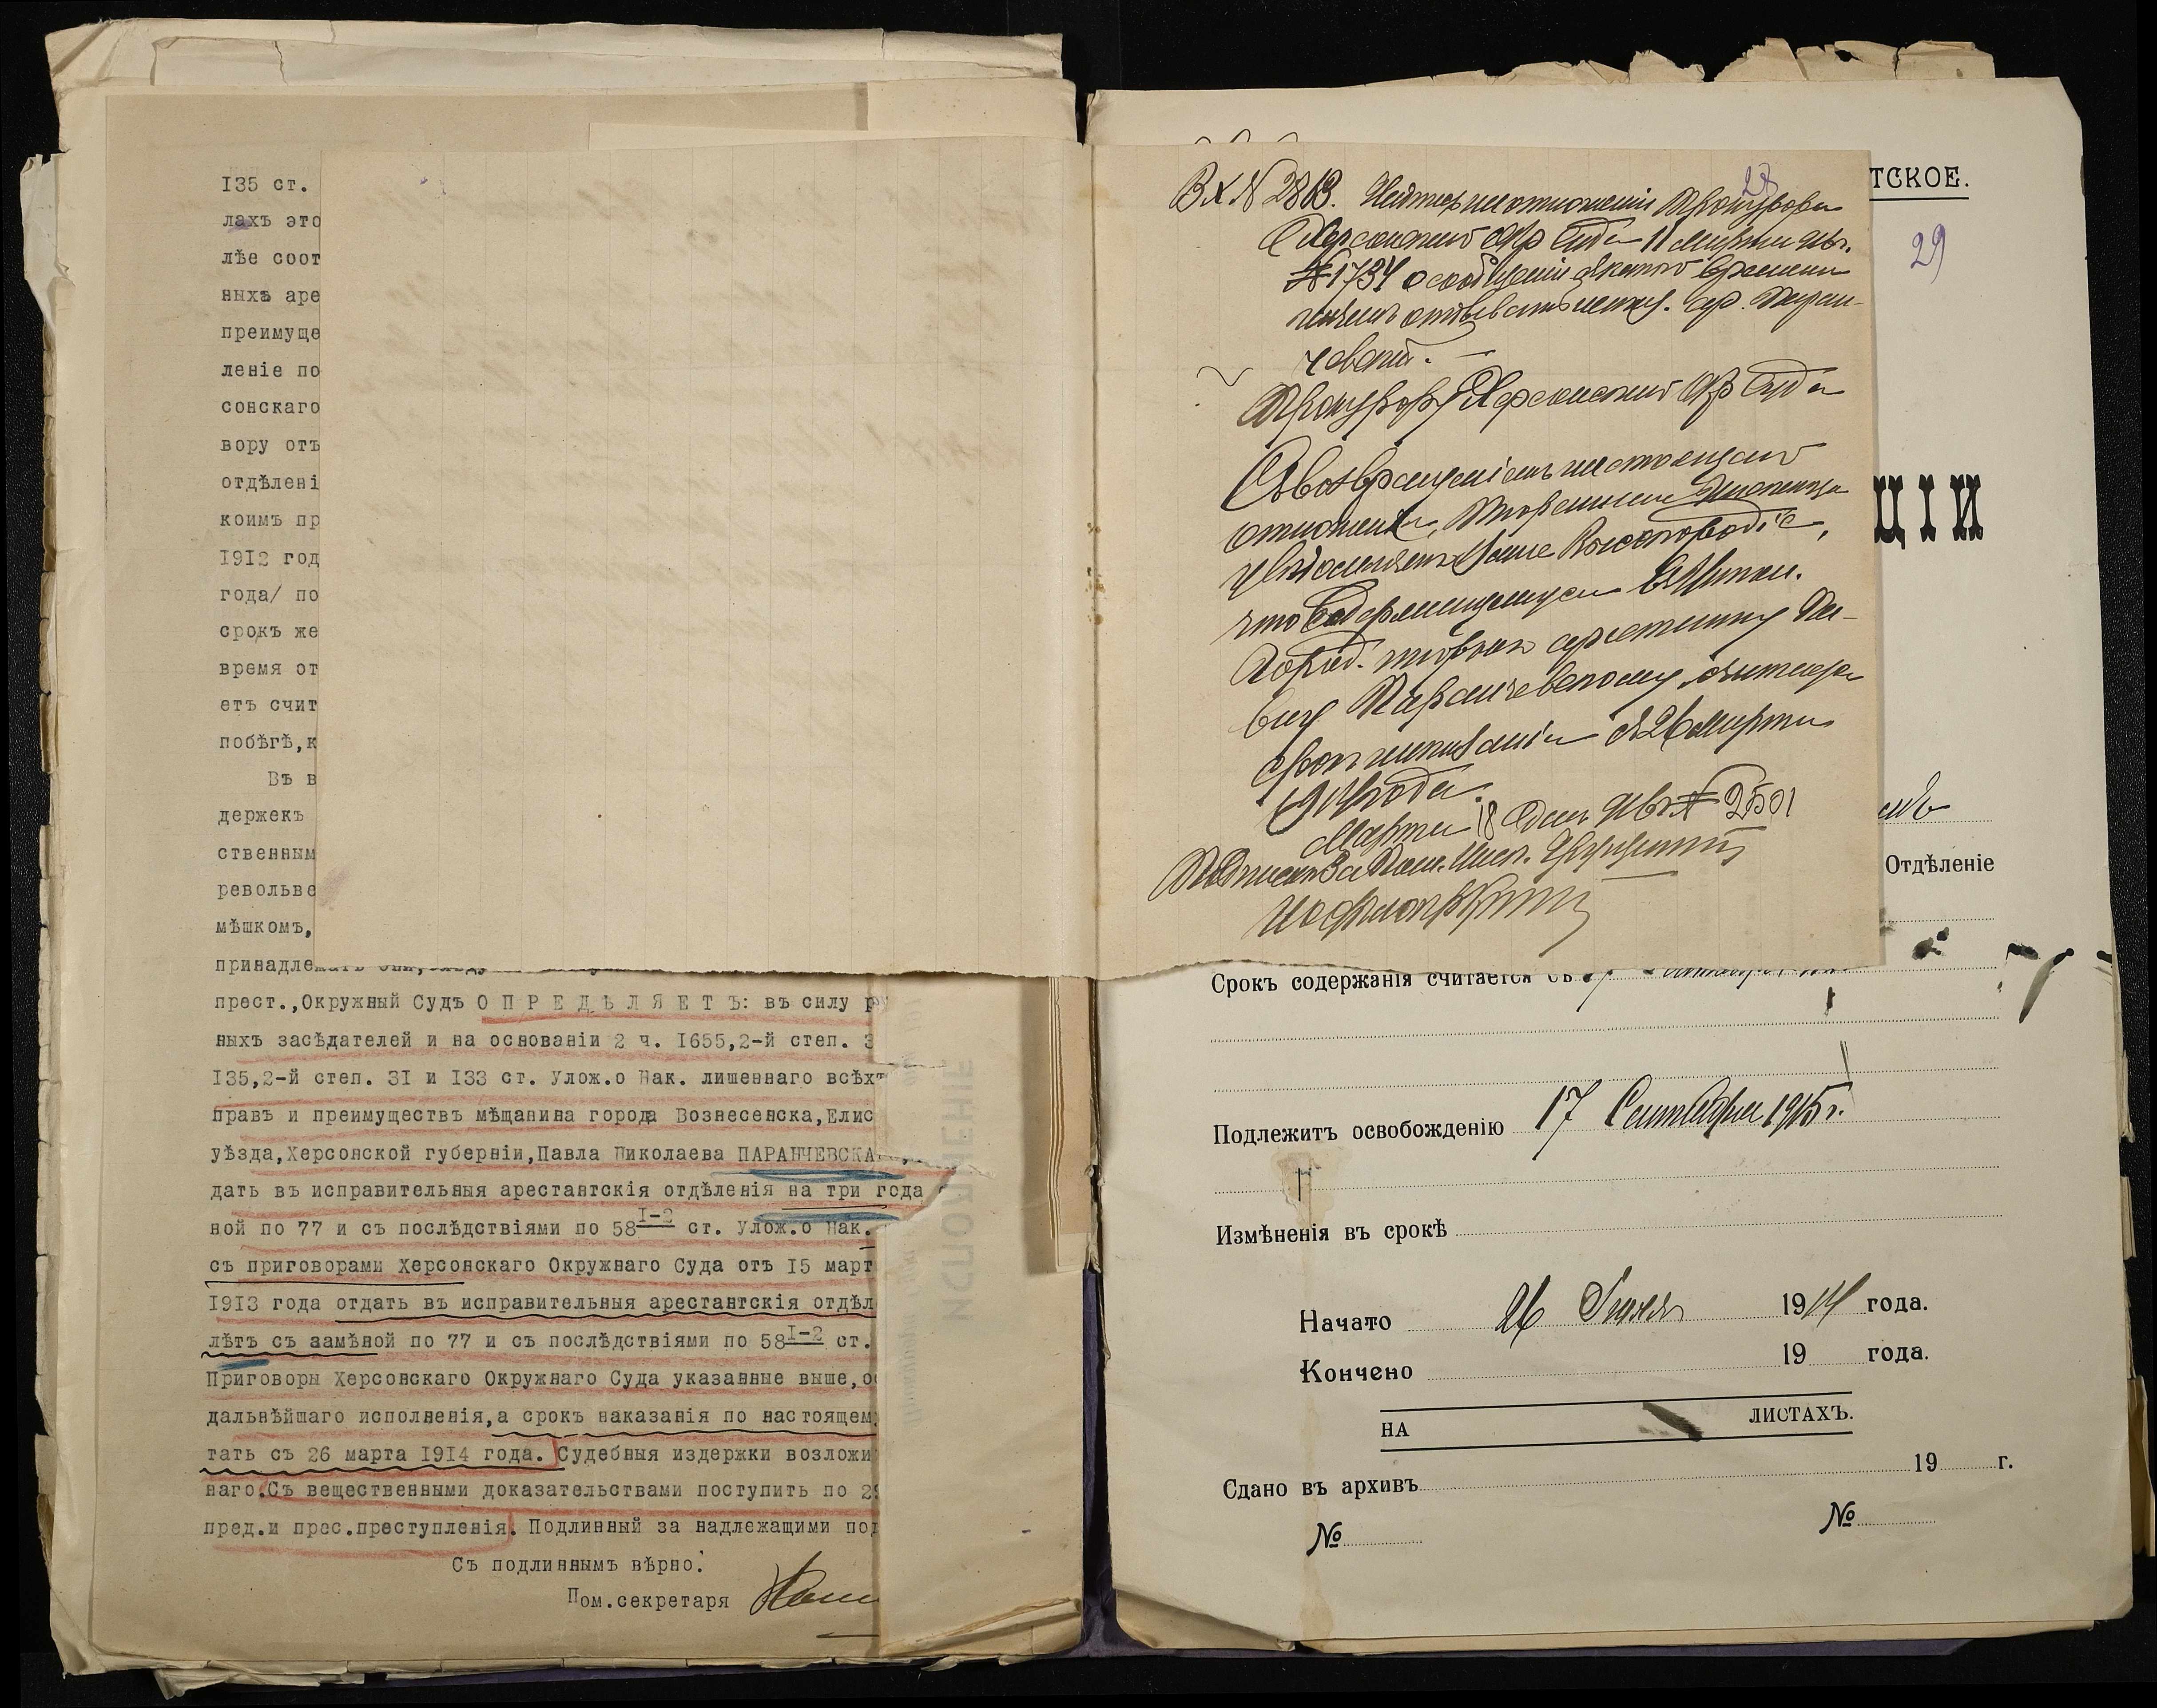 135 ст.
лахъ это
лѣе соот
ныхъ аре
преимуще
леніе по
сонскаго
вору отъ
отдѣлені
коимъ пр
1912 год
года/ по
срокъ же
время от
етъ счит
побѣгѣ,к
Въ в
держекъ
ственным
револьве
мѣшкомъ,
принадле
прест.,Окружный Судъ О П Р Е Д Ѣ Л Я Е Т Ъ: въ силу р
ныхъ засѣдателей и на основаніи 2 ч. 1655,2-й степ. 3
135,2-й степ. 31 и 133 ст. Улож.о Нак. лишеннаго всѣхъ
правъ и преимуществъ мѣщанина города Вознесенска,Елис
уѣзда,Херсонской губерніи,Павла Николаева ПАРАНЧЕВСКА
дать въ исправительныя арестантскія отдѣленія на три года
ной по 77 и съ послѣдствіями по 58 1-2 ст. Улож.о Нак.
съ приговорами Херсонскаго Окружнаго Суда отъ 15 март
1913 года отдать въ исправительныя арестантскія отдѣл
лѣтъ съ замѣной по 77 и съ послѣдствіями по 58 1-2 ст.
Приговоры Херсонскаго Окружнаго Суда указанные выше,о
дальнѣйшаго исполненія,а срокъ наказанія по настоящем
тать съ 26 марта 1914 года. Судебныя издержки возложи
наго.Съ вещественными доказательствами поступить по 29
пред.и прес.преступленія. Подлинный за надлежащими под
Съ подлиннымъ вѣрно:
Пом.секретаря
28
Вх № 2813. Прокурора
Херсонскаго Окр Суда 11 Марта
№ 1734 о сообщеніи съ какого времени
чевскій.
Прокурору Херсонскаго Окр Суда
Съ возвращеніемъ настоящаго
отношенія, Тюремная Инспекція
увѣдомляетъ Ваше Высокородіе,
что содержащемуся въ
арестанту Па-
влу Паранчевскому
срокъ наказанія съ 26 Марта
1914 года.
Марта 18 дня № 2501
ТСКОЕ.
29
ЦІИ
Отдѣленіе
Срокъ содержанія считается съ
Подлежитъ освобожденію 17 Сентября 1915 г.
Измѣненія въ срокѣ
Начато 26 1914 года.
Кончено 19 года.
НА ЛИСТАХЪ.
Сдано въ архивъ 19 г.
№ №